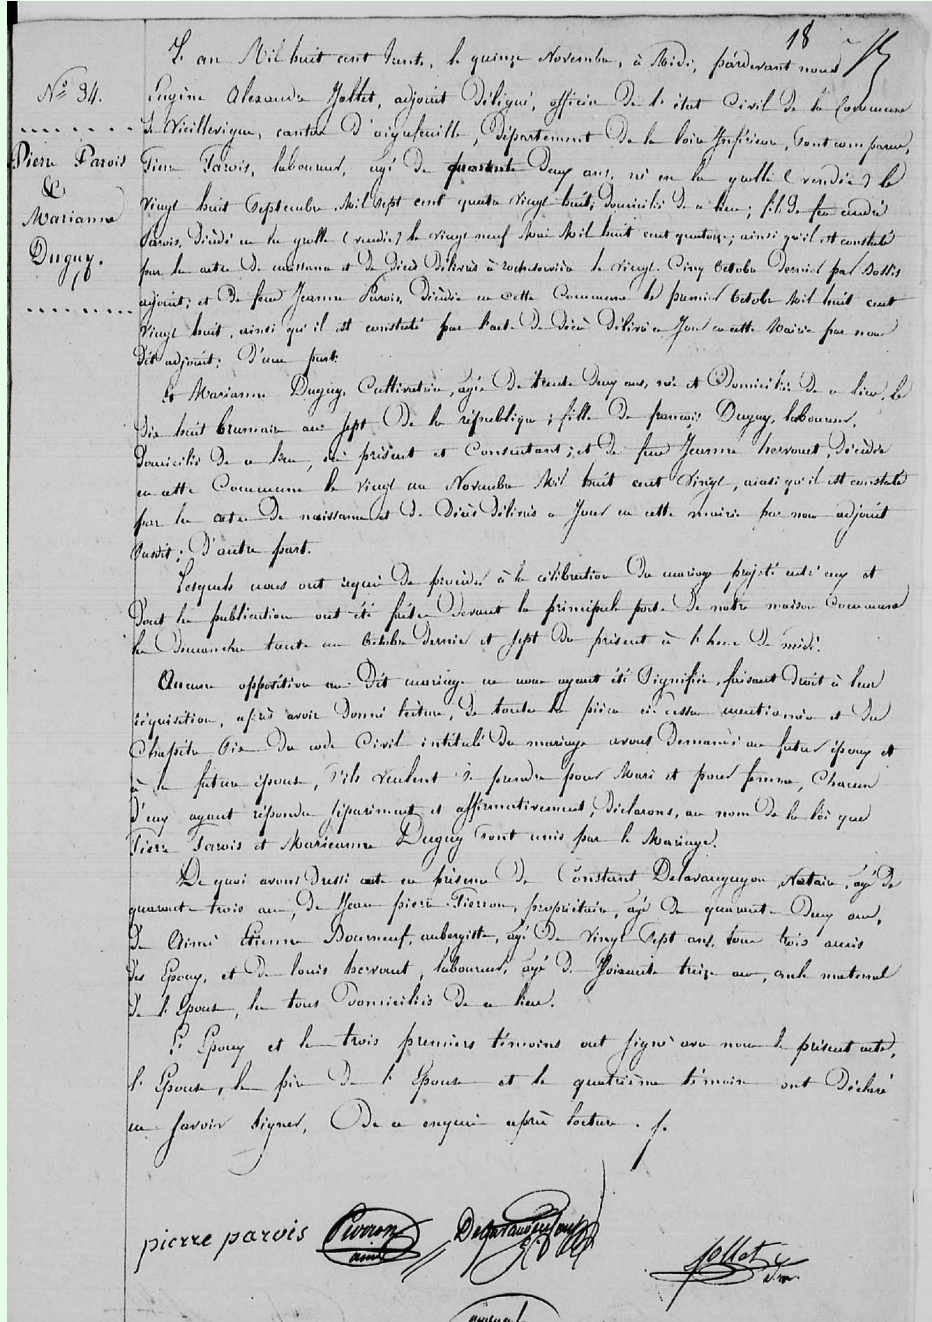 18
N° 34.
Pierre Parois
&
Marianne
Duguy.
L'an Mil huit cent trente, le quinze Novembre, à Midi, pardevant nous
Eugène Alexandre Jollet, adjoint délégué, officier de l'état Civil de la Commune
de Vieillevigne, canton d'aigrefeuille, département de la loire Inférieure, sont comparus,
Pierre Parois, laboureur, agé de quarante deux ans, né en la grolle (vendée) le
vingt huit Septembre Mil sept cent quatre vingt huit; domicilié de ce lieu; fils de feu
Parois, décédé en la grolle (vendée) le vingt neuf Mai Mil huit cent quatorze; ainsi qu'il est constaté
par les actes de naissance et de décès délivrés à rocheservière le vingt Cinq Octobre Dernier par
adjoint; et de feue Jeanne Parois, décédée en cette Commune le premier Octobre Mil huit cent
vingt huit, ainsi qu'il est constaté par l'acte de décès délivré ce Jour en cette Mairie par nous
dit adjoint; d'une part.
Et Marianne Duguy, Cultivatrice, agée de trente deux ans, née et Domiciliée de ce lieu, le
dix huit brumaire an sept de la république; fille de françois Duguy, laboureur,
domicilié de ce lieu, ici présent et Consentant; et de feue Jeanne hervouet, décédée
en cette Commune le vingt un Novembre Mil huit cent vingt, ainsi qu'il est constaté
par les actes de naissance et de décès délivrés ce Jour en cette mairie par nous adjoint
susdit; d'autre part.
Lesquels nous ont requis de procéder à la célébration du mariage projeté entr'eux et
dont les publications ont été faites devant la principale porte de notre maison Commune
les dimanches trente un Octobre dernier et sept du présent à l'heure de midi.
Aucune opposition au Dit mariage ne nous ayant été Signifiée, faisant droit à leur
réquisition, après avoir donné lecture, de toutes les pièces ci-dessus mentionnées et du
Chapitre Six du code Civil intitulé du mariage avons demandé au futur époux et
à la future épouse, s'ils veulent se prendre pour Mari et pour femme, Chacun
d'eux ayant répondu séparément et affirmativement, déclarons, au nom de la loi que
Pierre Parois et Marieanne Duguy sont unis par le Mariage.
De quoi avons dressé acte en présence de Constant Delavauguyon Notaire, agé de
quarante trois ans, de Jean pierre Pierron, propriétaire, agé de quarante deux ans,
de Aimé Etienne Bourneuf, aubergiste, agé de vingt sept ans, tous trois amis
des Epoux, et de louis hervouet, laboureur, agé de soixante treize ans, oncle maternel
de l'Epouse, les tous Domiciliés de ce lieu.
L'Epoux et les trois premiers témoins ont signé avec nous le présent acte,
l'Epouse, le père de l'Epouse et le quatrième témoin ont déclaré
ne savoir signer, De ce enquis après lecture.
pierre parois Pierron Delavauguyon
ainé
Jollet